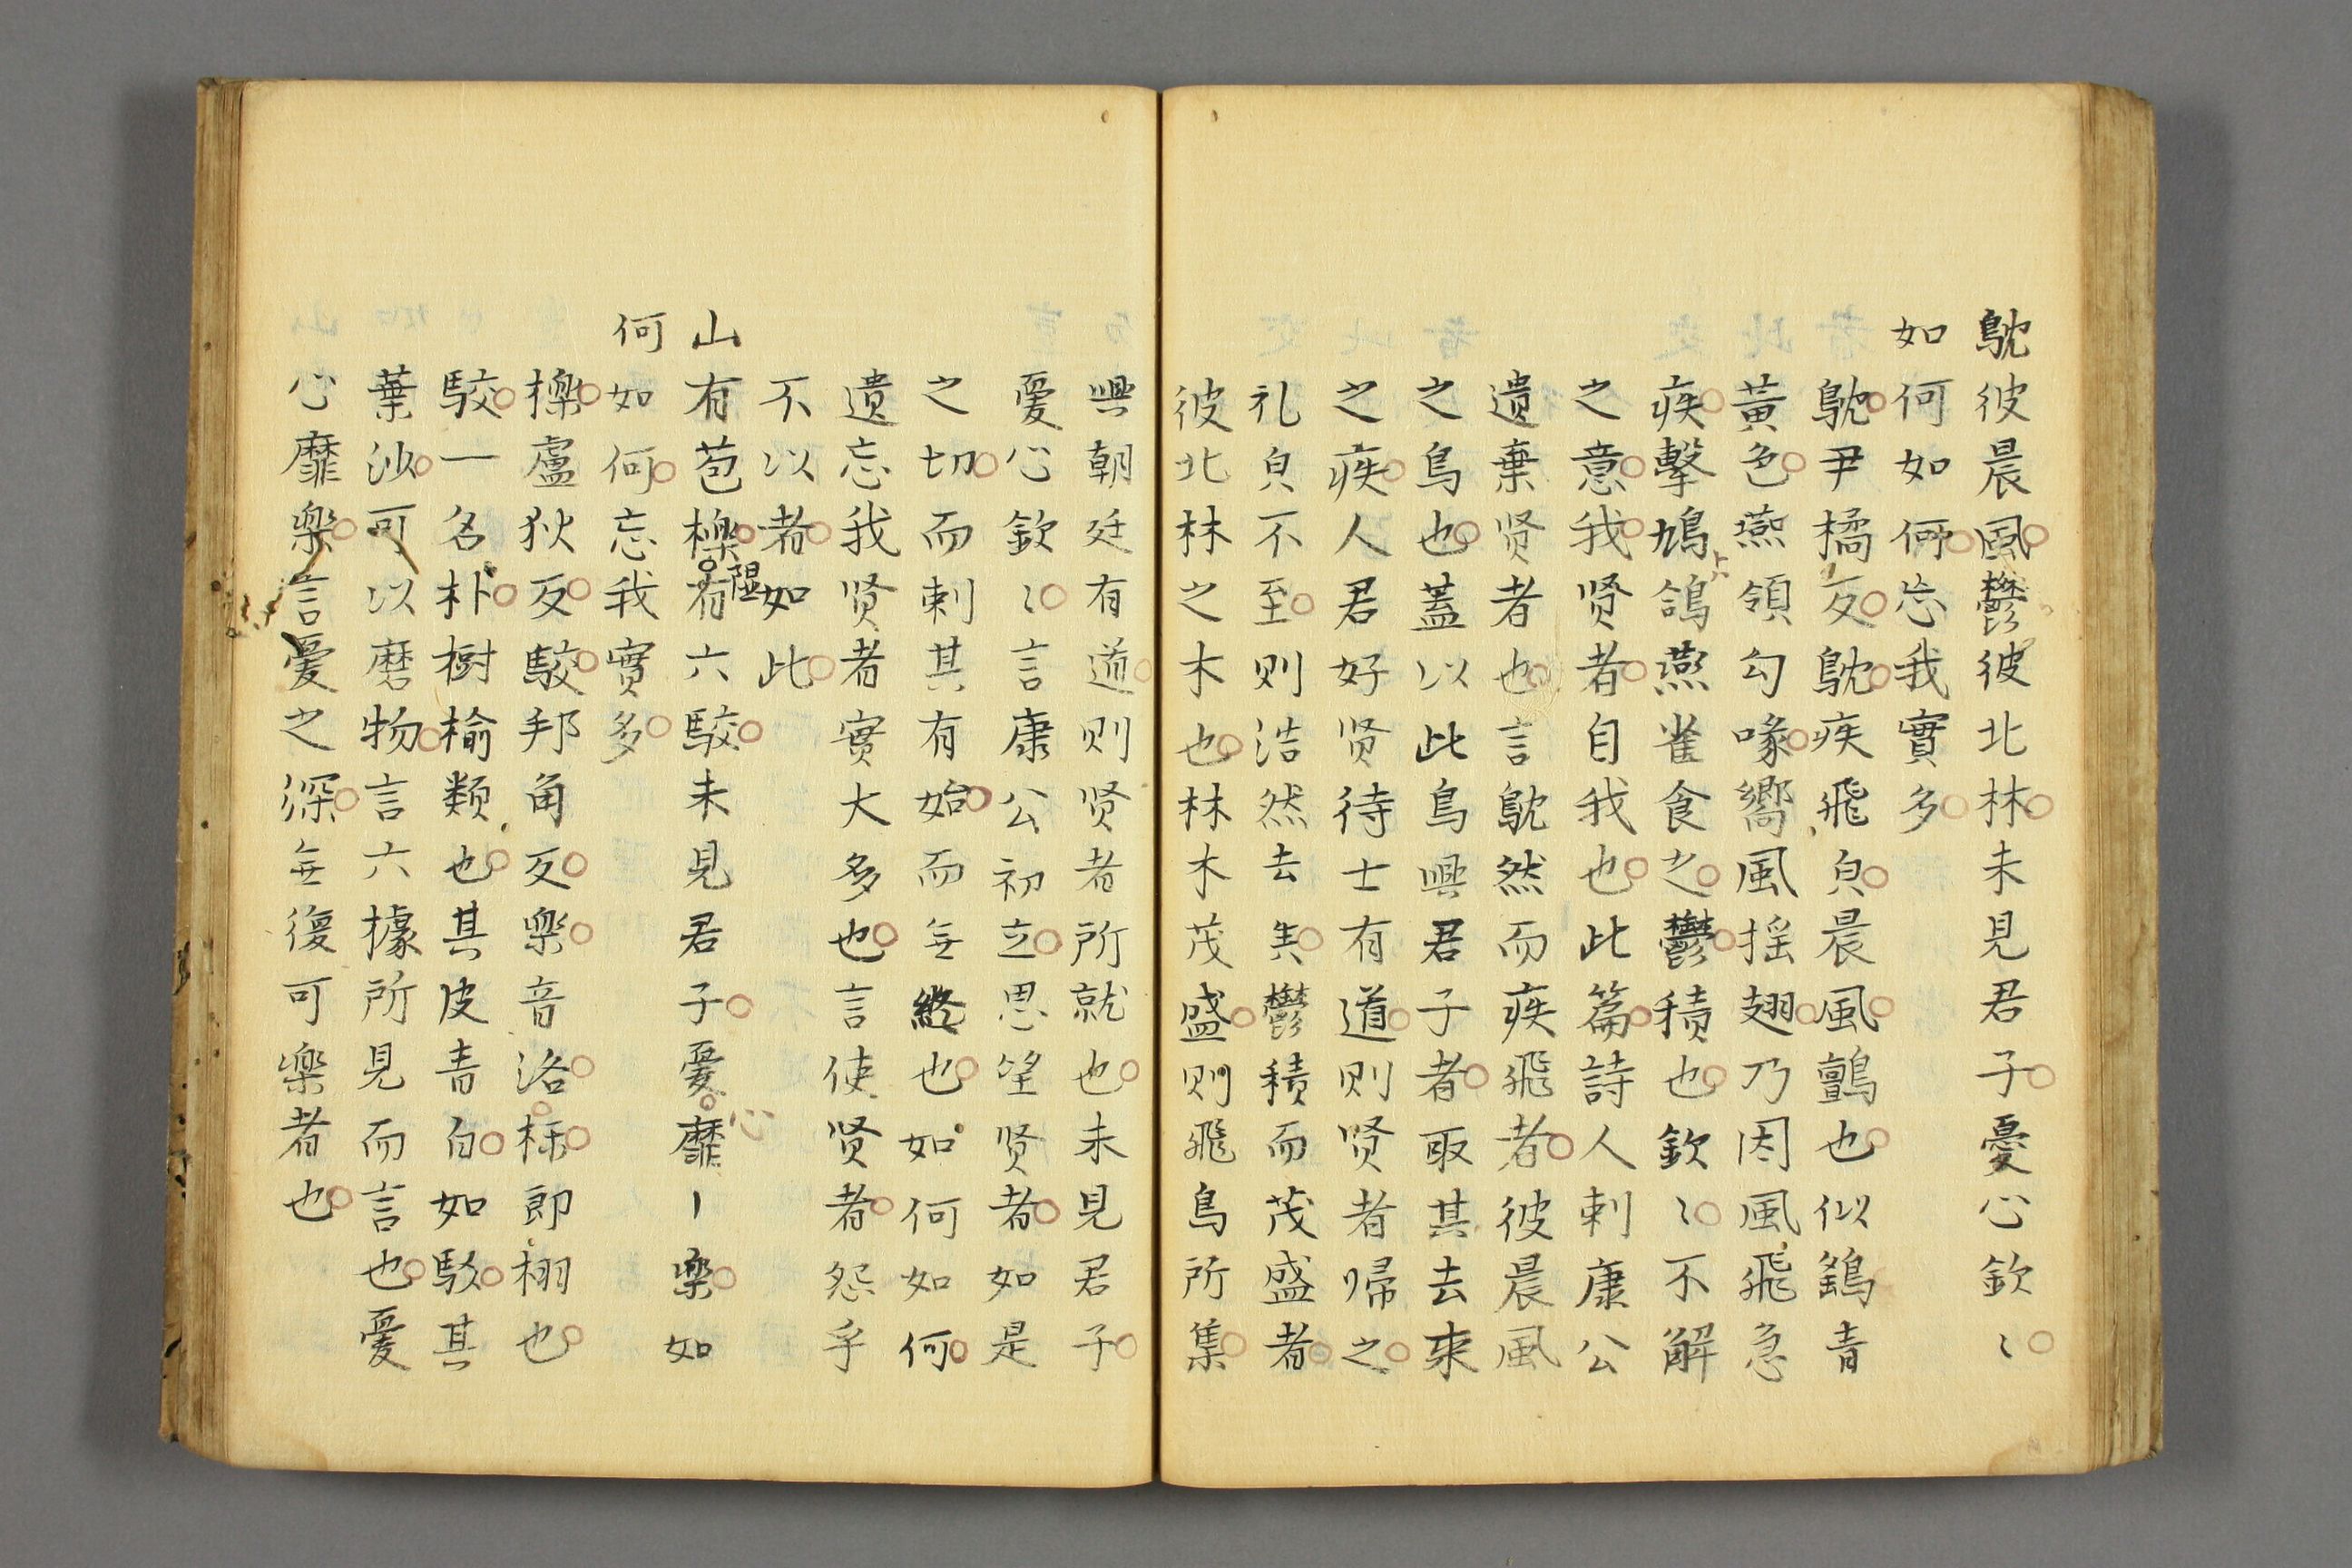 鴥彼晨風鬱彼北林未見君子憂心欽〻
如何如何忘我實多
鴥尹橘反鴥疾飛㒵晨風鸇也似鷂青
黃色燕頷勾喙嚮風揺翅乃因風飛急
疾擊鳩鴿燕雀食之鬱積也欽〻不解
之意我賢者自我也此篇詩人刺康公
遗棄贤者也言鴥然而疾飛者彼晨風
之鳥也蓋以此鳥興君子者取其去来
之疾人君好贤待士有道则贤者帰之
礼㒵不至则浩然去矣鬱積而茂盛者
彼北林之木也林木茂盛则飛鳥所集
興朝廷有道则贤者所就也未見君子
憂心欽〻言康公初立思望贤者如是
之切而刺其有始而無終也如何如何
遗忘我贤者實大多也言使贤者怨乎
不以者如此
山有苞櫟隰有六駮未見君子憂心靡丨樂如
何如何忘我實多
櫟盧狄反駮邦角反樂音洛櫟即栩也
駮一名朴樹榆類也其皮青白如駁其
葉沙可以磨物言六據所見而言也憂
心靡樂言憂之深無復可樂者也